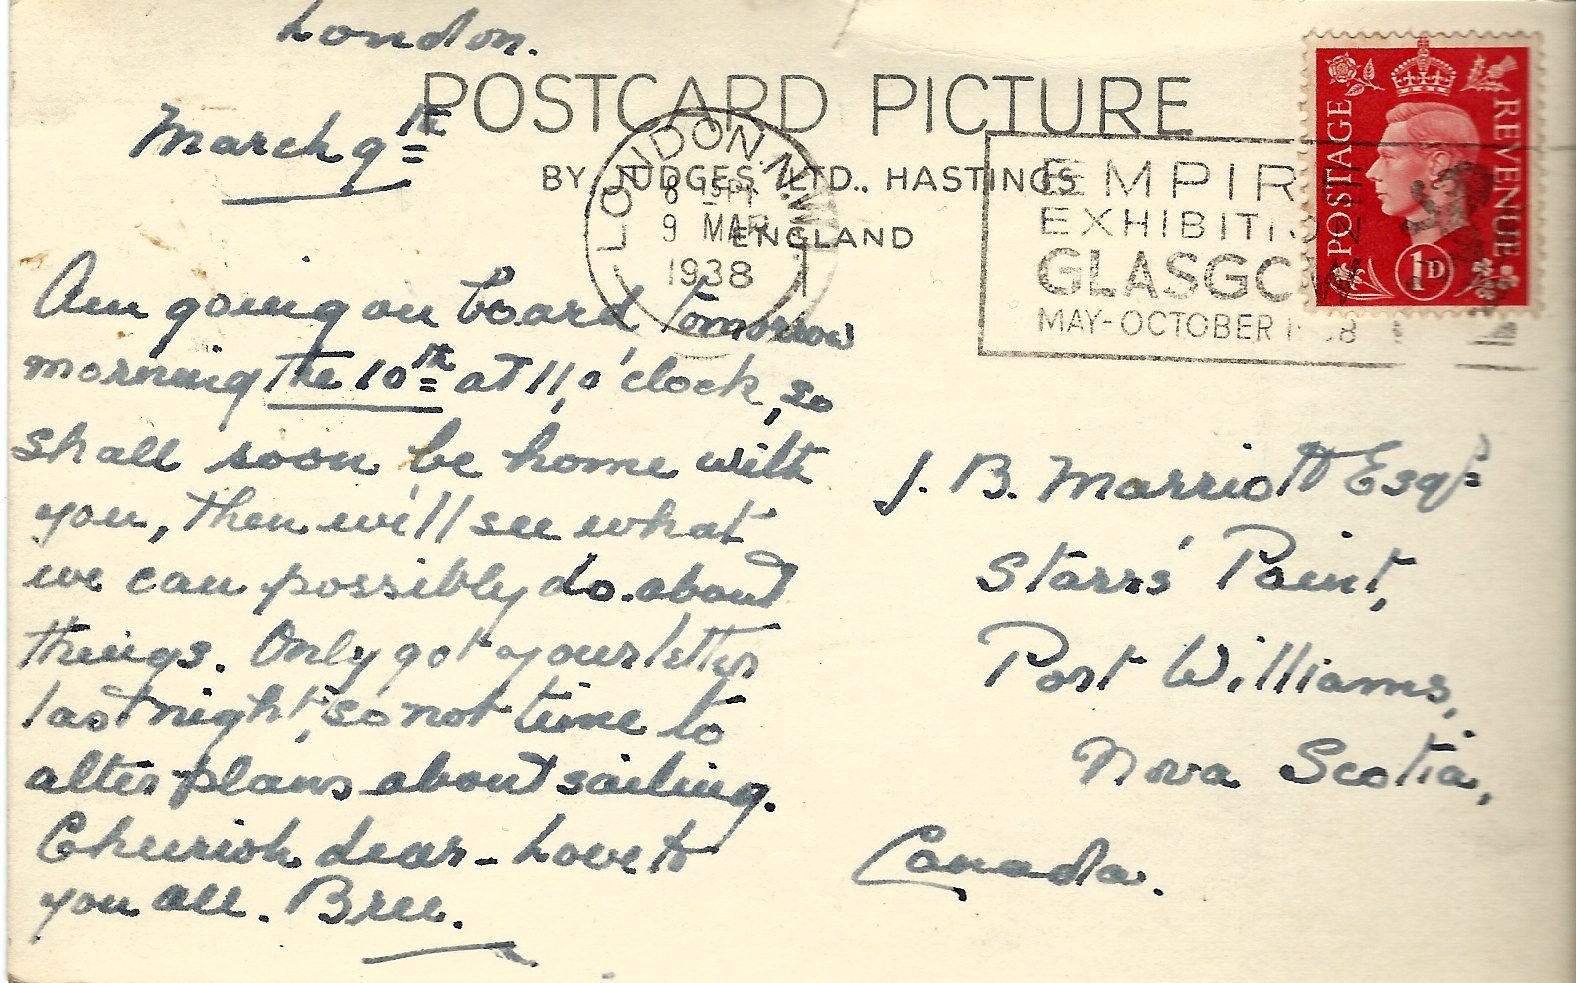 London.
March 9th
POSTCARD PICTURE
BY JUDGES LTD., HASTINGS
ENGLAND
LONDON. N.W.
8 15 PM
9 MAR
1938
EMPIRE
EXHIBITION
GLASGOW
MAY-OCTOBER 1938
POSTAGE
REVENUE
1D
Am going on board tomorrow
morning the 10th at 11 o'clock, so
shall soon be home with
you, then we'll see what
we can possibly do about
things. Only got your letter
last night, so not time to
alter plans about sailing.
Cheerioh dear - Love to
you all. Bree.
J. B. Marriott Esqr
Starrs' Point,
Port Williams,
Nova Scotia,
Canada.